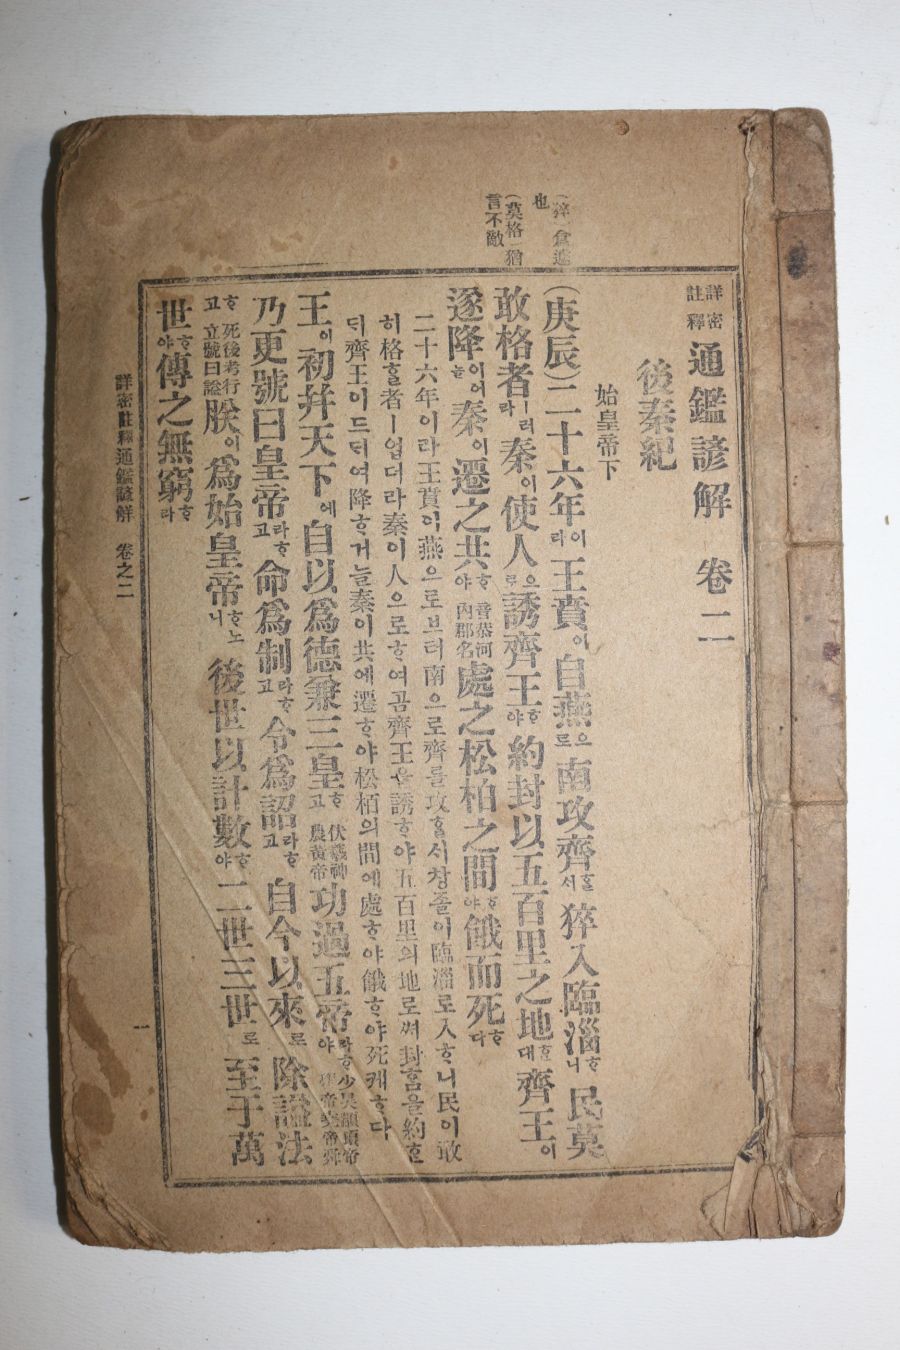 詳密註釋 通鑑諺解 卷二
後秦紀
始皇帝下
(庚辰)二十六年이리 王賁이 自燕으로 南攻齊할서 猝入臨淄ᄒᆞ니 民莫
敢格者ㅣ러라 秦이 使人으로 誘齊王ᄒᆞ야 約封以五百里之地ᄒᆞᆫ대 齊王이
遂降이어늘 秦이 遷之共ᄒᆞ야 音恭河內郡名 處之松柏之間ᄒᆞ야 餓而死ᄒᆞ다
二十六年이라 王賁이 燕으로브터 南으로 齊를 攻ᄒᆞᆯᄉᆡ 창졸이 臨淄로 入ᄒᆞ니 民이 敢
히 格ᄒᆞᆯ 者ㅣ 업더라 秦이 人으로 ᄒᆞ여곰 齊王을 誘ᄒᆞ야 五百里의 地로써 封홈을 約ᄒᆞᆫ
ᄃᆡ 齊王이 드ᄃᆡ여 降ᄒᆞ거늘 秦이 共에 遷ᄒᆞ야 松栢의 間에 處ᄒᆞ야 餓ᄒᆞ야 死케ᄒᆞ다
王이 初幷天下에 自以爲德兼三皇ᄒᆞ고 伏羲神農黃帝 功過五帝라ᄒᆞ야 少昊顓頊帝嚳帝堯帝舜
乃更號曰皇帝라ᄒᆞ고 命爲制라ᄒᆞ고 令爲詔라ᄒᆞ고 自今以來로 除諡法
ᄒᆞ고 死後考行立號曰諡 朕이 爲始皇帝ᄒᆞ노니 後世以計數ᄒᆞ야 二世三世로 至于萬
世ᄒᆞ야 傳之無窮ᄒᆞ라
(猝)倉遽
也
(莫格)猶
言不敵
詳密註釋通鑑諺解 卷之二
一